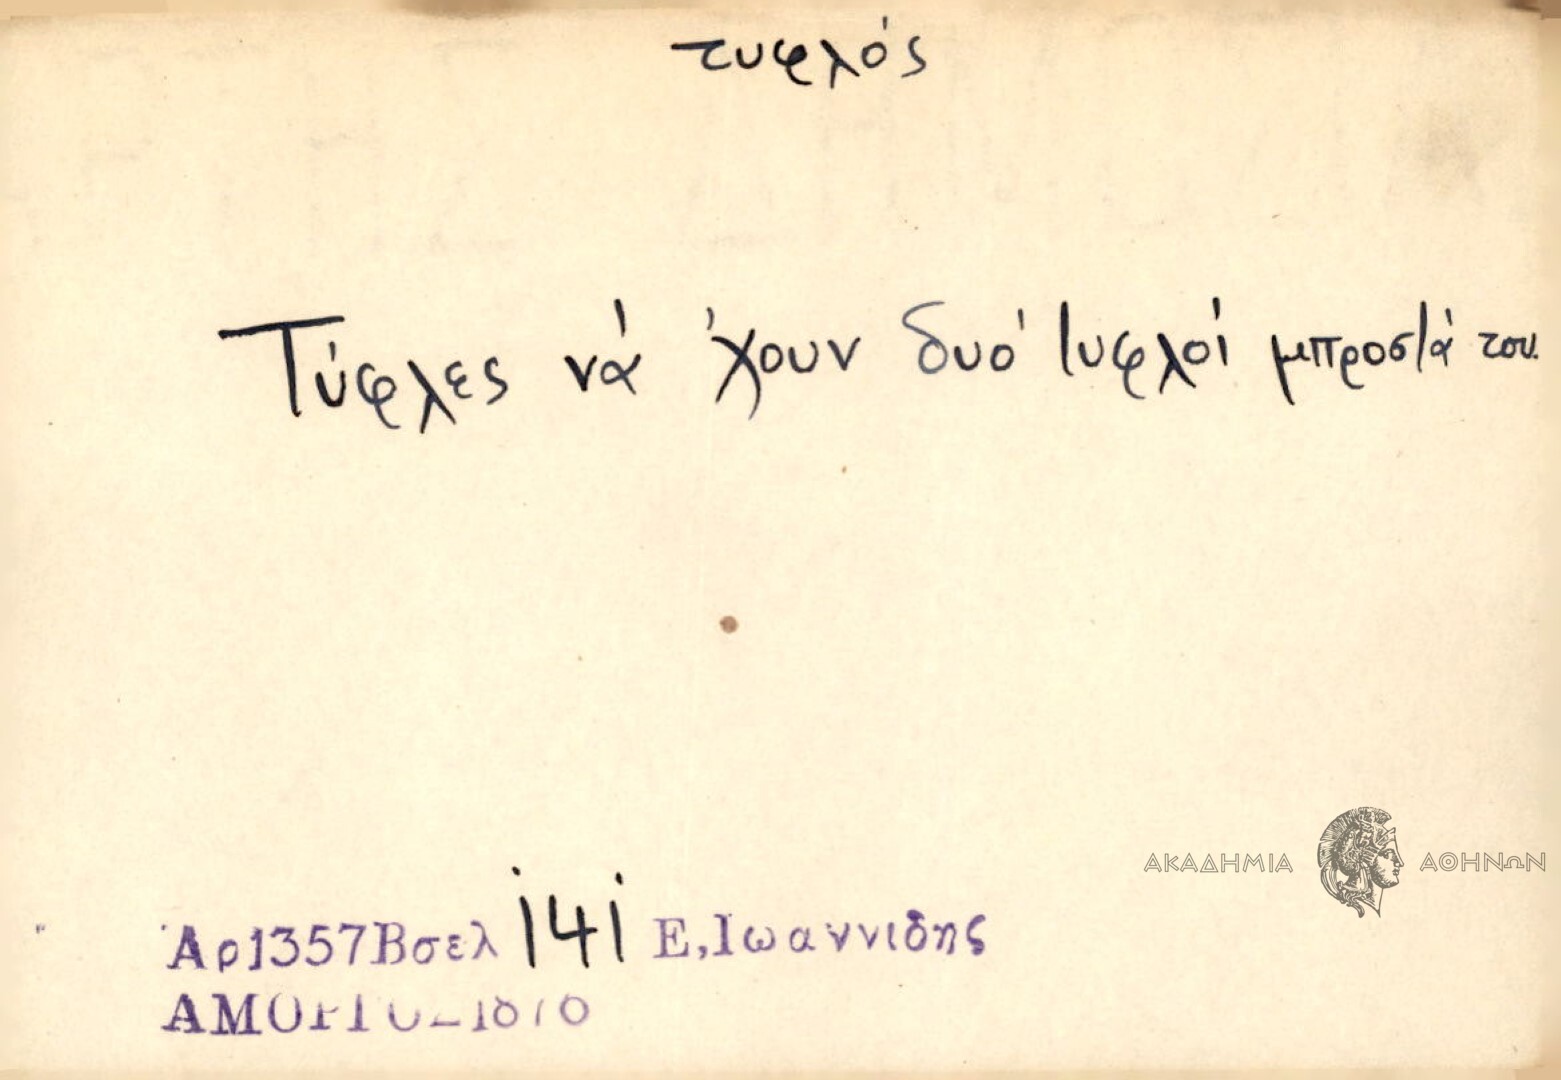 τυφλός
Τύφλες νά 'χουν δυό τυφλοί μπροστά του.
ΑΚΑΔΗΜΙΑ ΑΘΗΝΩΝ
Ἀρ1357Βσελ 141 Ε,Ιωαννιδης
ΑΜΟΡΓΟΣ